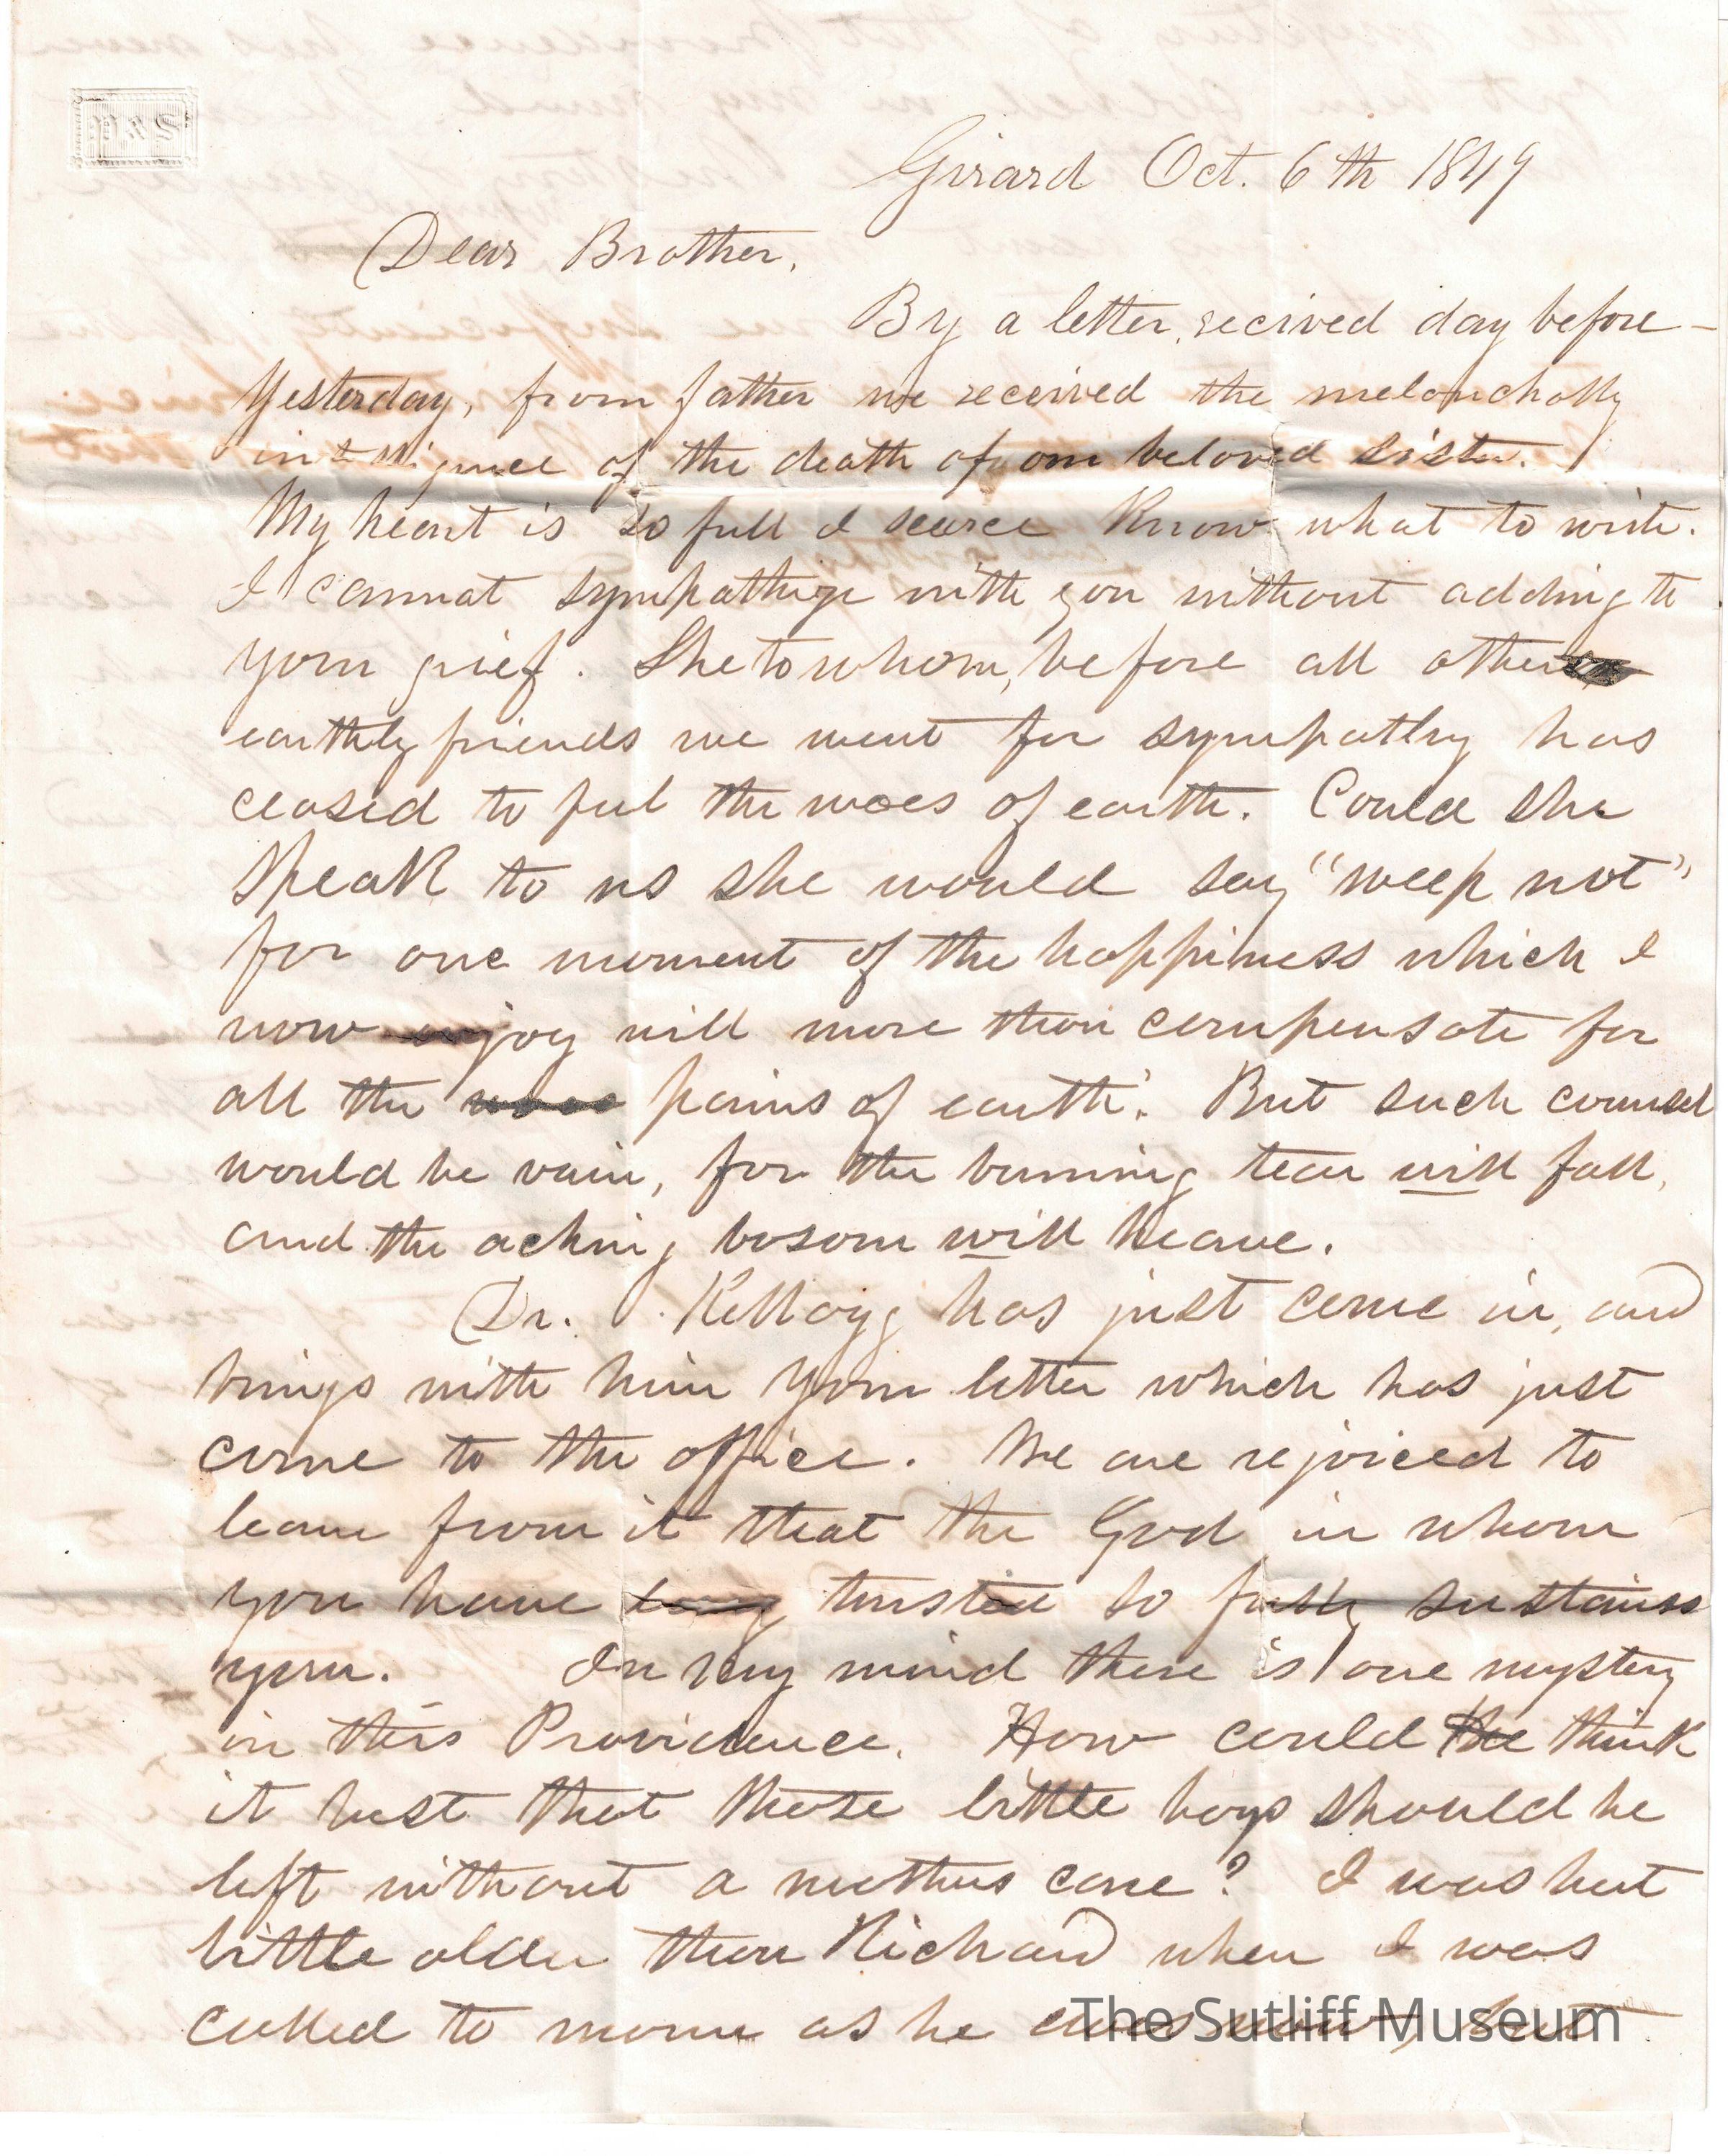 P&S
Girard Oct. 6th 1849
Dear Brother,
By a letter, recived day before-
yesterday, from father we received the meloncholly
intelligence of the death of our beloved sister.
My heart is so full I scarce know what to write.
I cannot sympathize with you without adding to
your grief. She to whom, before all other
earthly friends we went for sympathy has
ceased to feel the woes of earth. Could she
speak to us she would say "weep not"
for one moment of the happiness which I
now enjoy will more than compensate for
all the woes pains of earth". But such counsel
would be vain, for the burning tear will fall,
and the aching bosom will heave.
Dr. Kellogg has just come in, and
brings with him your letter which has just
come to the office. We are rejoiced to
learn from it that the God in whom
you have long trusted so fully sustains
you. In my mind there is one mystery
in this Providence. How could He think
it best that those little boys should be
left without a mothers care? I was but
little older than Richard when I was
called to mourn as he does now, but
The Sutliff Museum